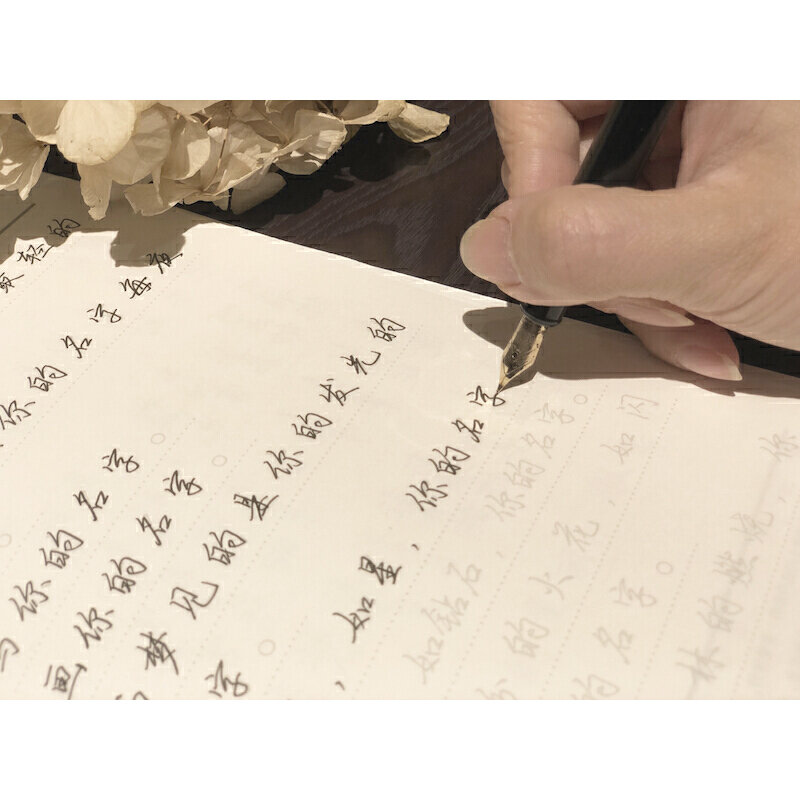 轻的
你的名字每夜
你的名字
画你的名字
梦见的是你的发光的
字
如星，你的名字
如钻石，你的名字。
的火花，如闪
的名字。
林的燃烧，你